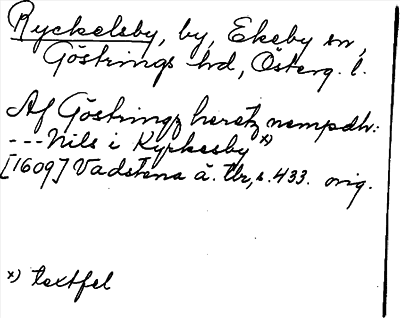 Ryckelsby, by, Ekeby sn,
Göstrings hd, Österg. l.
Af Göstringz heretz nempdh:
---Nils i Kyrkesby x)
[1609] Vadstena ä. tbr, s. 433. orig.
x) textfel